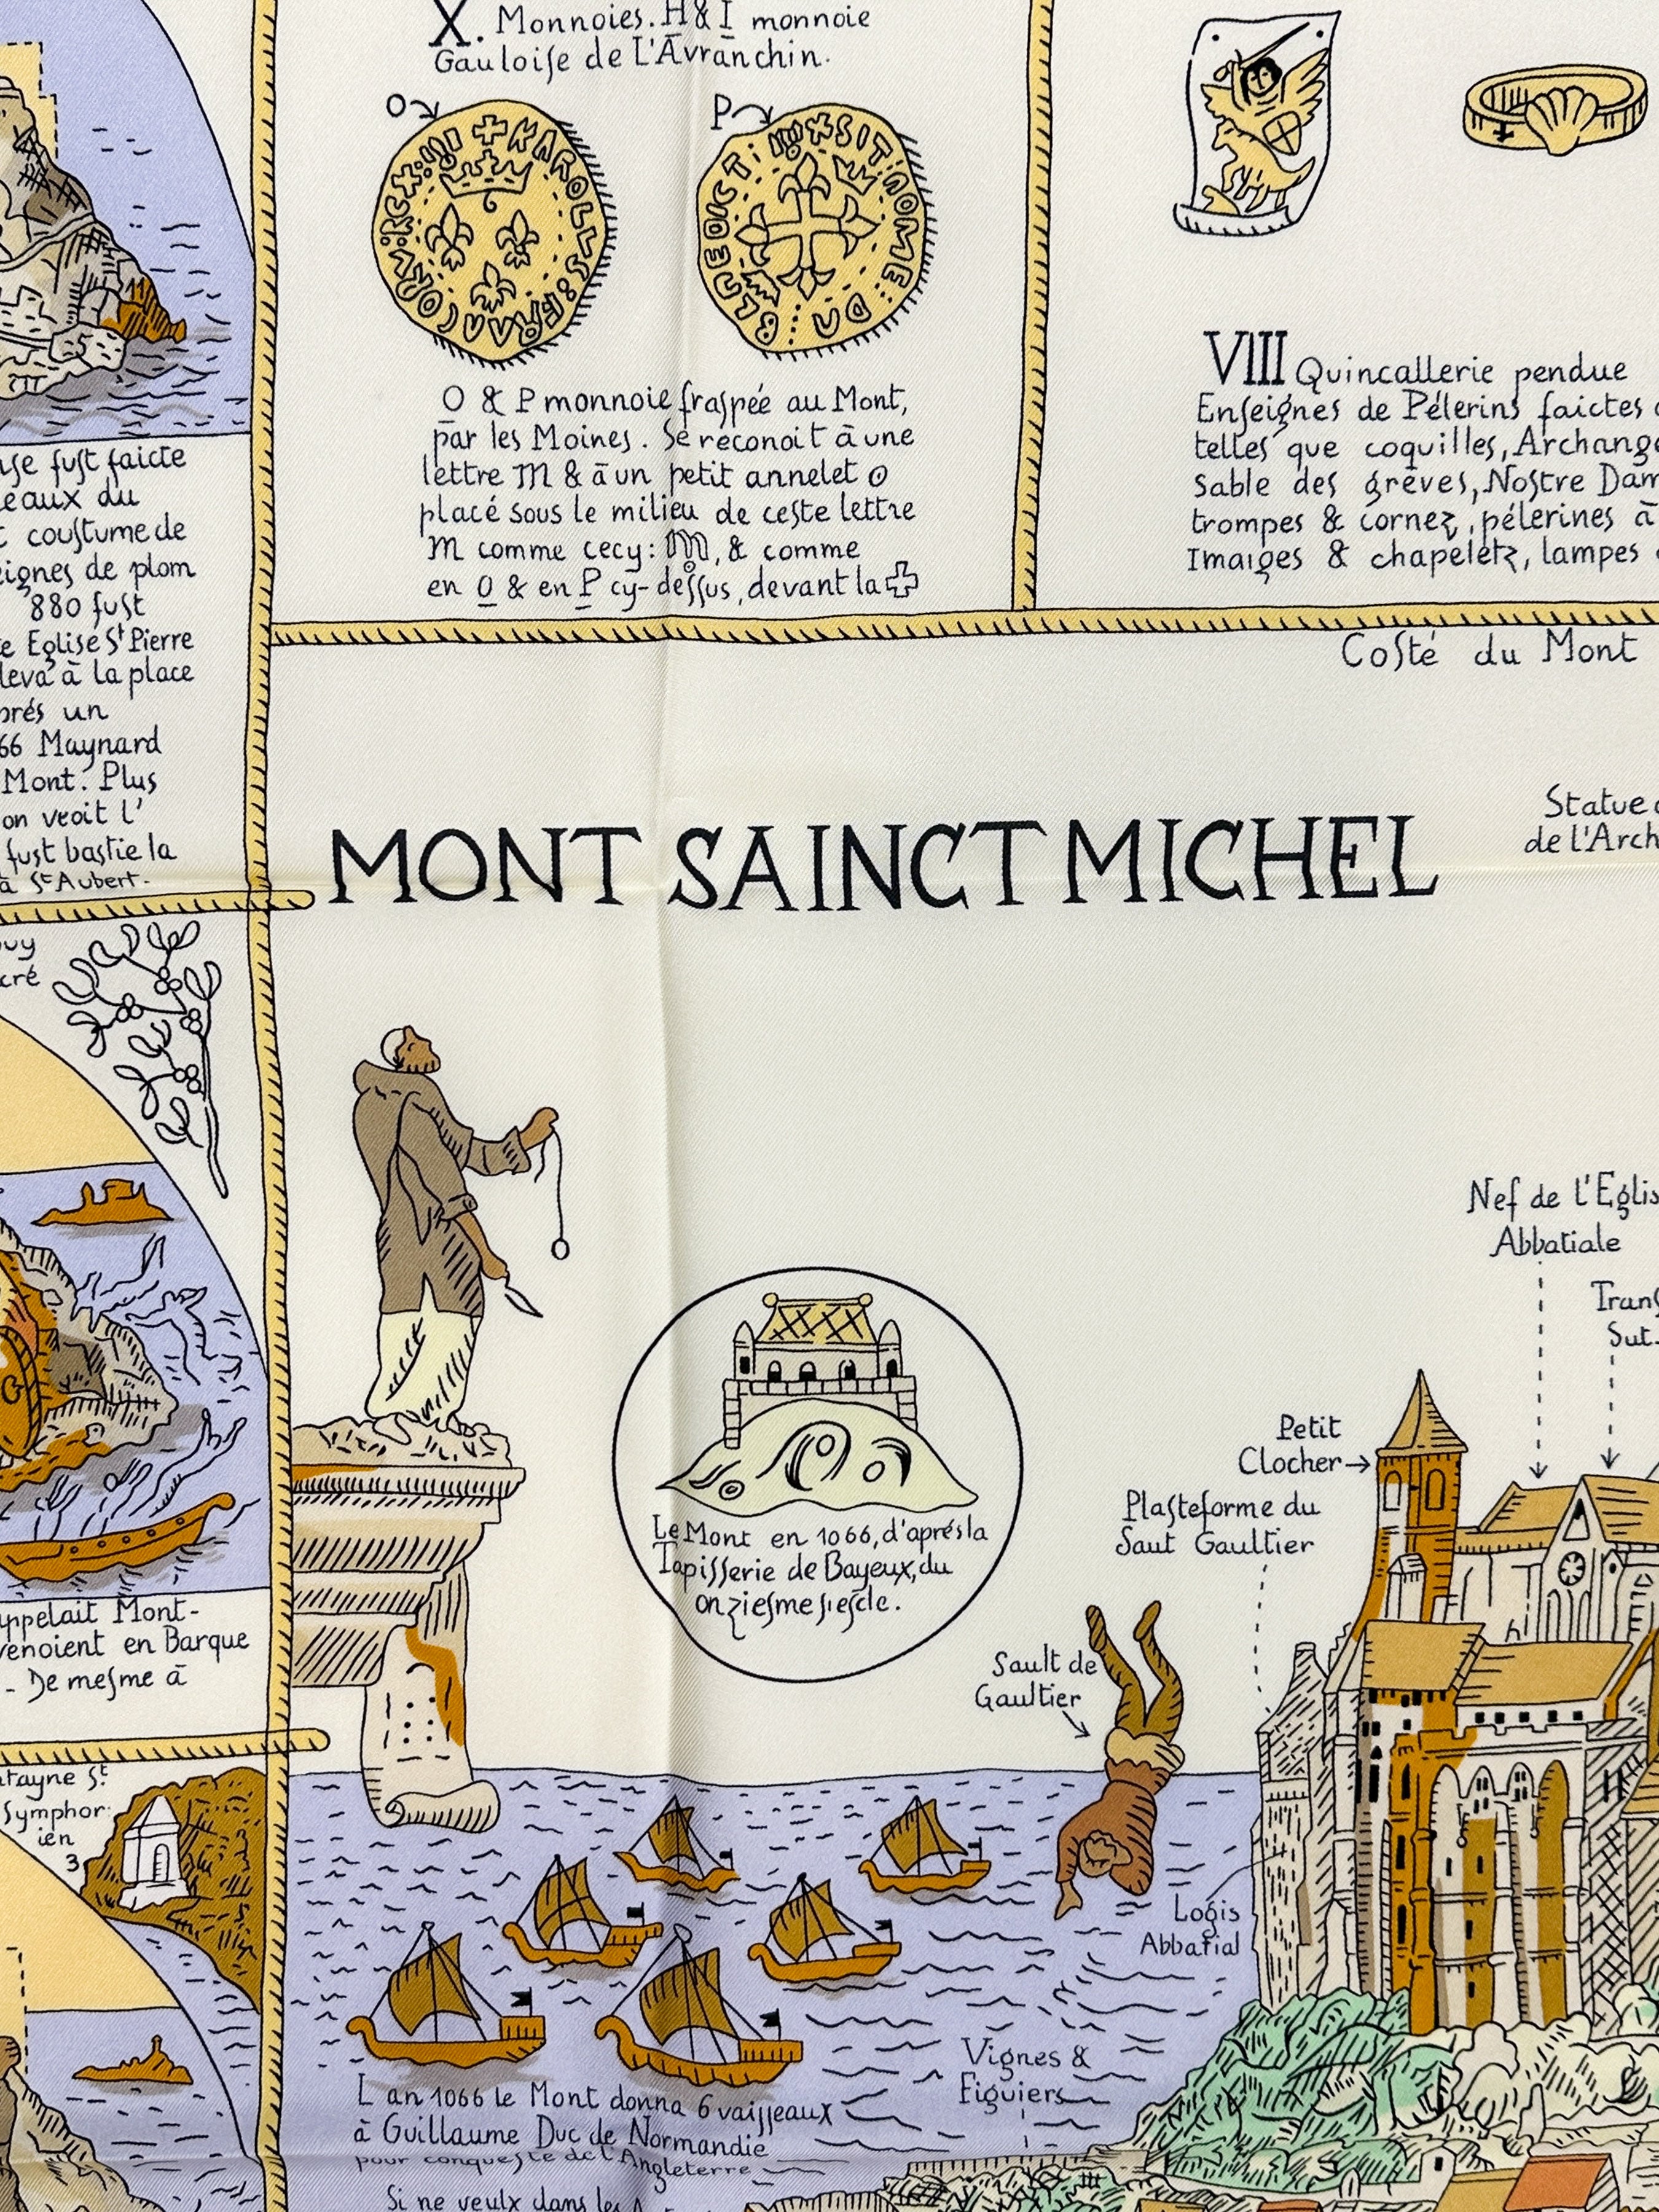 X. Monnoies. H & I monnoie
Gauloiſe de L'Avranchin.
O
P
+ KAROLLS: FRANCORV: REX:
+ SIT: NOME: DNI: BENEDICT:
O & P monnoie fraſpée au Mont,
par les Moines. Se reconoit ā une
lettre M & ā un petit annelet o
placé sous le milieu de ceſte lettre
M comme cecy: M, & comme
en O & en P cy-deſſus, devant la
VIII Quincallerie pendue
Enſeignes de Pélerins faictes
telles que coquilles, Archang
Sable des grèves, Noſtre Dam
trompes & cornez, pélerines ā
Imaiges & chapeletz, lampes
uſe fuſt faicte
eaux du
couſtume de
eignes de plom
880 fuſt
e Egliſe St Pierre
leva ā la place
prés un
66 Maynard
Mont. Plus
on veoit l'
fuſt baſtie la
ā St Aubert.
uy
cré
Coſté du Mont
MONT SAINCT MICHEL
Statue
de l'Arch
Nef de l'Egliſ
Abbatiale
Petit
Clocher
Plaſteforme du
Saut Gaultier
Le Mont en 1066, d'aprés la
Tapiſſerie de Bayeux, du
onzieſme ſieſcle.
Sault de
Gaultier
appelait Mont-
venoient en Barque
- De meſme ā
ntayne St
Symphor
ien
3
Logis
Abbatial
Vignes &
Figuiers
L an 1066 le Mont donna 6 vaiſſeaux
à Guillaume Duc de Normandie
pour conqueſte de l'Angleterre
Si ne veulx dans les